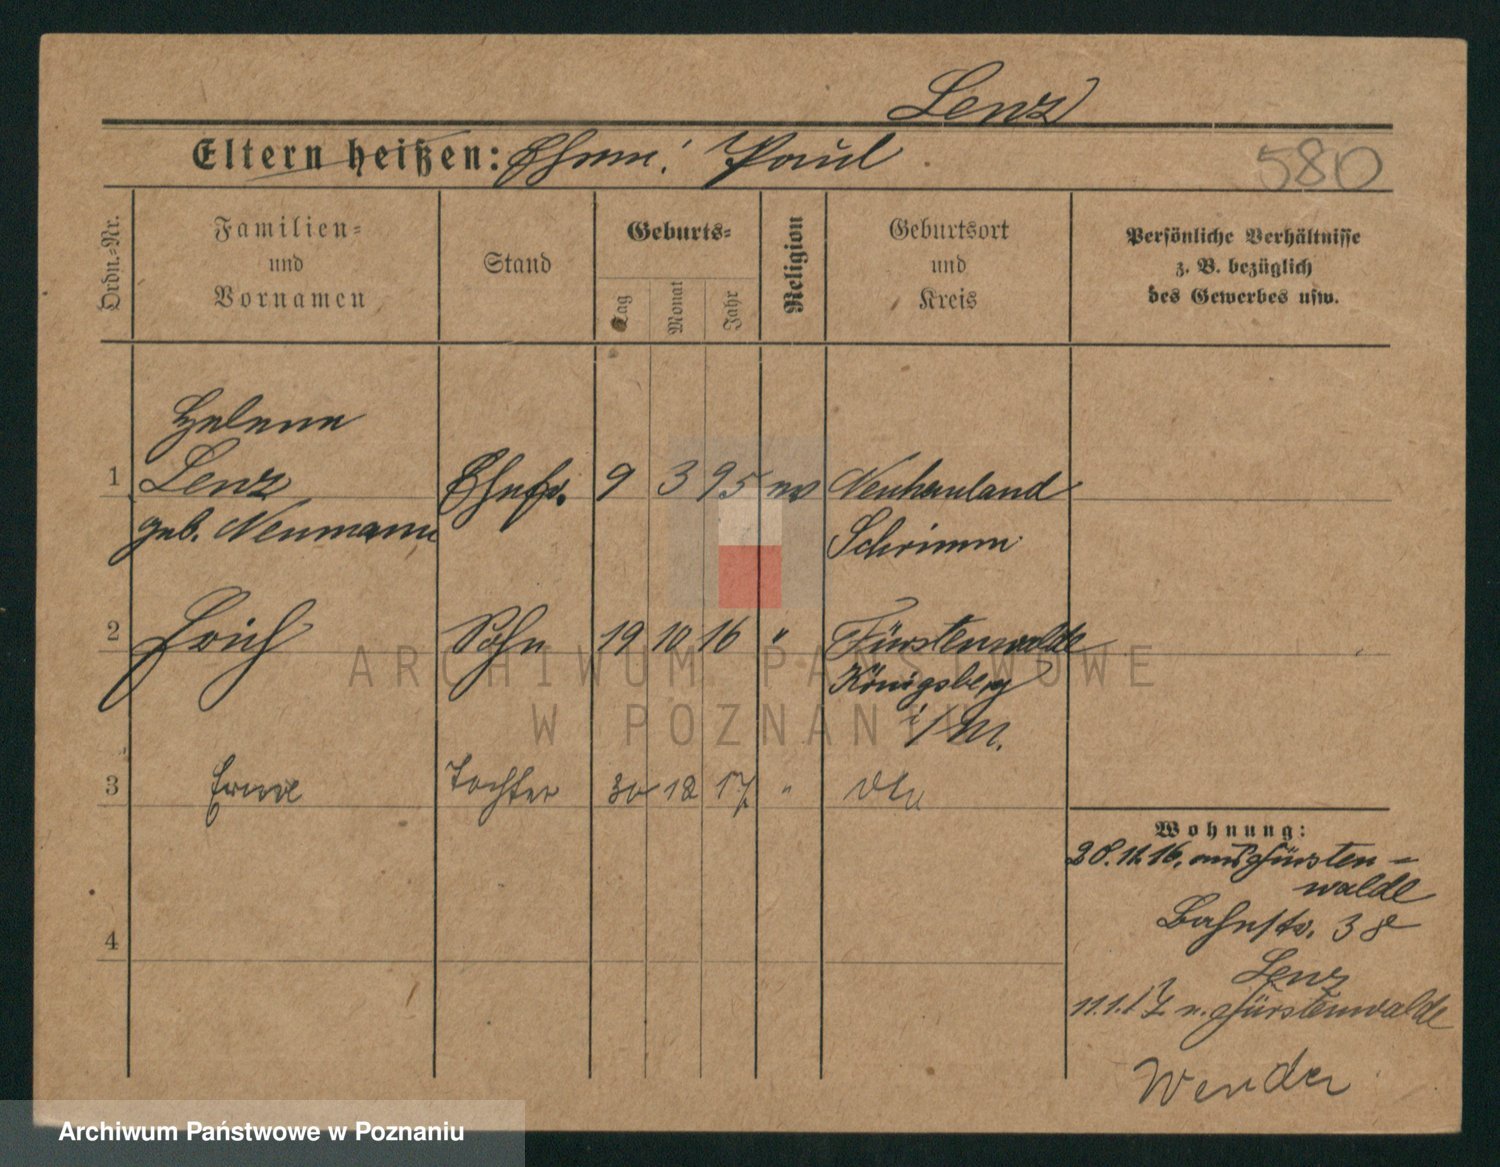 Lenz
Eltern heißen: Ehem: Paul
580
Ordn.-Nr.
Familien-
und
Vornamen
Stand
Geburts-
Tag
Monat
Jahr
Religion
Geburtsort
und
Kreis
Persönliche Verhältnisse
z. B. bezüglich
des Gewerbes usw.
Helene
1 Lenz Ehefr. 9 3 95 ev Neuhauland
geb. Neumann Schrimm
2 Erich Sohn 19 10 16 " Fürstenwalde
Königsberg
i/M.
3 Tochter 30 12 17 "
4
Wohnung:
28.11.16. aus Fürsten-
walde
Bahnstr. 38
Lenz
11.1.17 n. Fürstenwalde
Wenden
ARCHIWUM PAŃSTWOWE
W POZNANIU
Archiwum Państwowe w Poznaniu